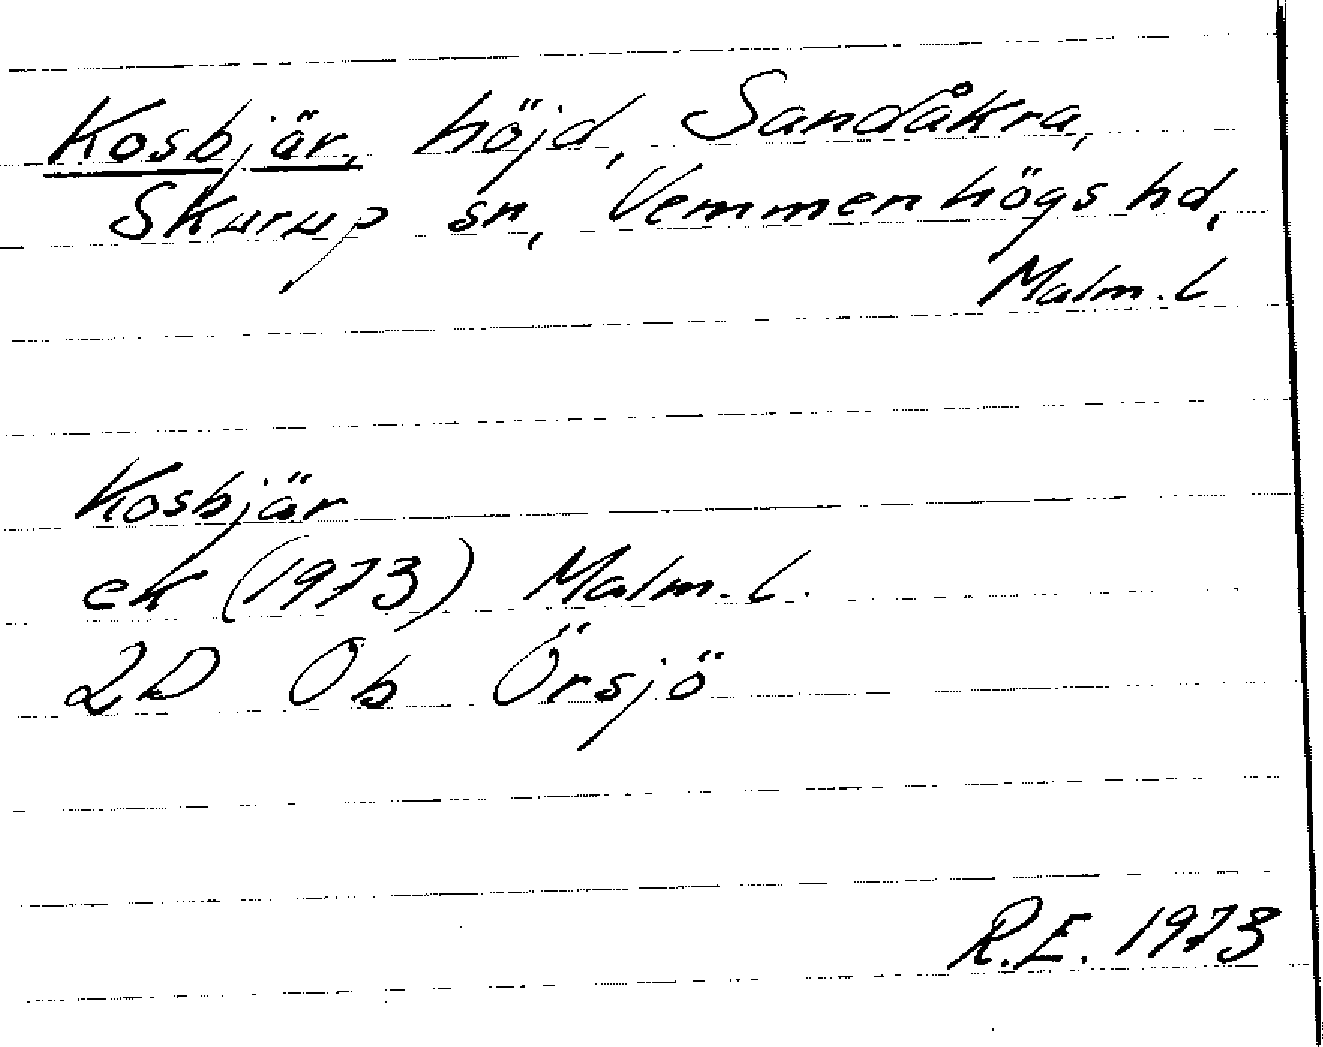 Kosbjär, höjd, Sandåkra,
Skurup sn, Vemmenhögs hd,
Malm. l
Kosbjär
ek (1973) Malm. l.
2D Ob Örsjö
R.E. 1973